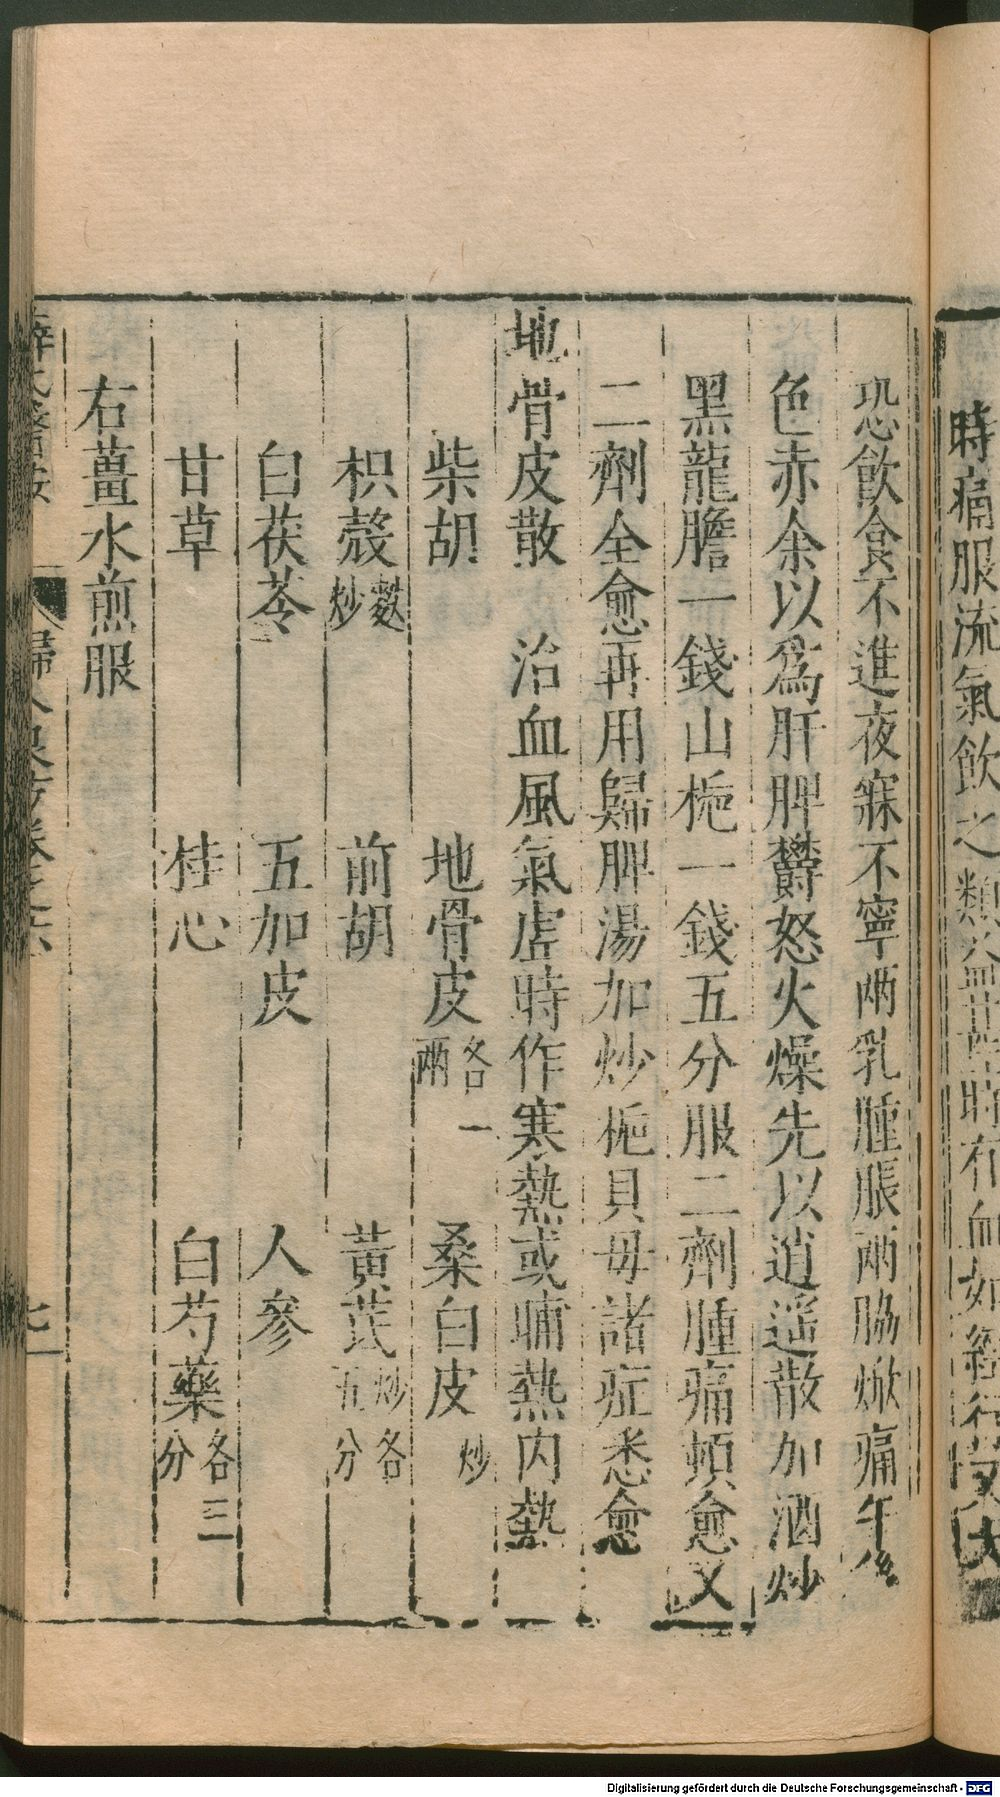 時痛服流氣飲之類
恐飲食不進夜寐不寧兩乳腫脹兩脇焮痛午後
色赤余以爲肝脾欝怒火燥先以逍遥散加酒炒
黑龍膽一錢山梔一錢五分服二劑腫痛頓愈又
二劑全愈再用歸脾湯加炒梔貝母諸症悉愈
地骨皮散　治血風氣虚時作寒熱或晡熱内熱
柴胡　地骨皮各一兩　桑白皮炒
枳殻麩炒　前胡　黃芪炒各五分
白茯苓　五加皮　人參
甘草　桂心　白芍藥各三分
右薑水煎服
七
Digitalisierung gefördert durch die Deutsche Forschungsgemeinschaft - DFG